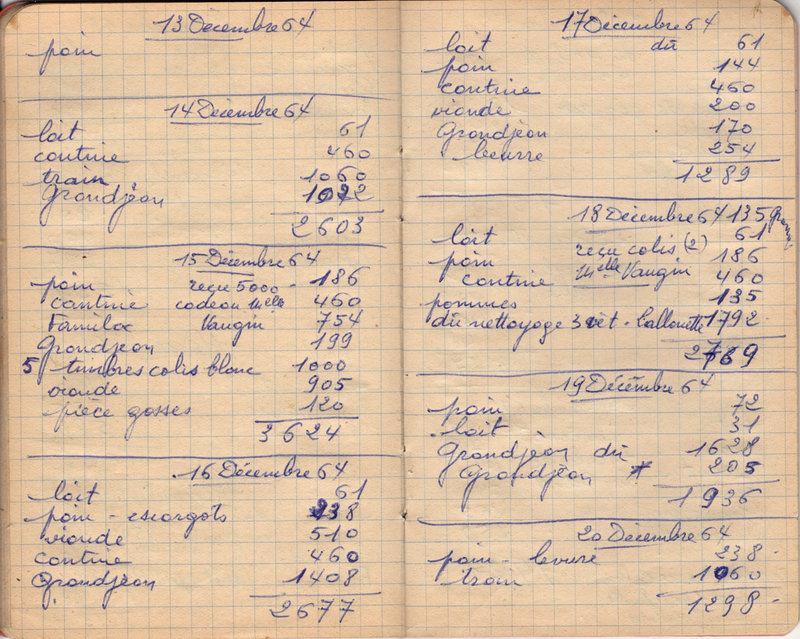 13 Décembre 64
pain
14 Décembre 64
lait 61
cantine 460
train 1060
Grandjean 1022
2603
15 Décembre 64
pain reçu 5000 - 186
cantine cadeau Melle 460
Familia Vaugin 754
Grandjean 199
5 timbres colis blanc 1000
viande 905
pièce gosses 120
3624
16 Décembre 64
lait 61
pain - escargots 238
viande 510
cantine 460
Grandjean 1408
2677
17 Décembre 64
lait dû 61
pain 144
cantine 460
viande 200
Grandjean 170
beurre 254
1289
18 Décembre 64 135
lait reçu colis (2) 61
pain Melle Vaugin 186
cantine 460
pommes 135
dû nettoyage 3 vêt - Lallouette 1792
2769
19 Décembre 64
pain 72
lait 31
Grandjean dû 1628
Grandjean * 205
1936
20 Décembre 64
pain - levure 238 -
train 1060
1298 -